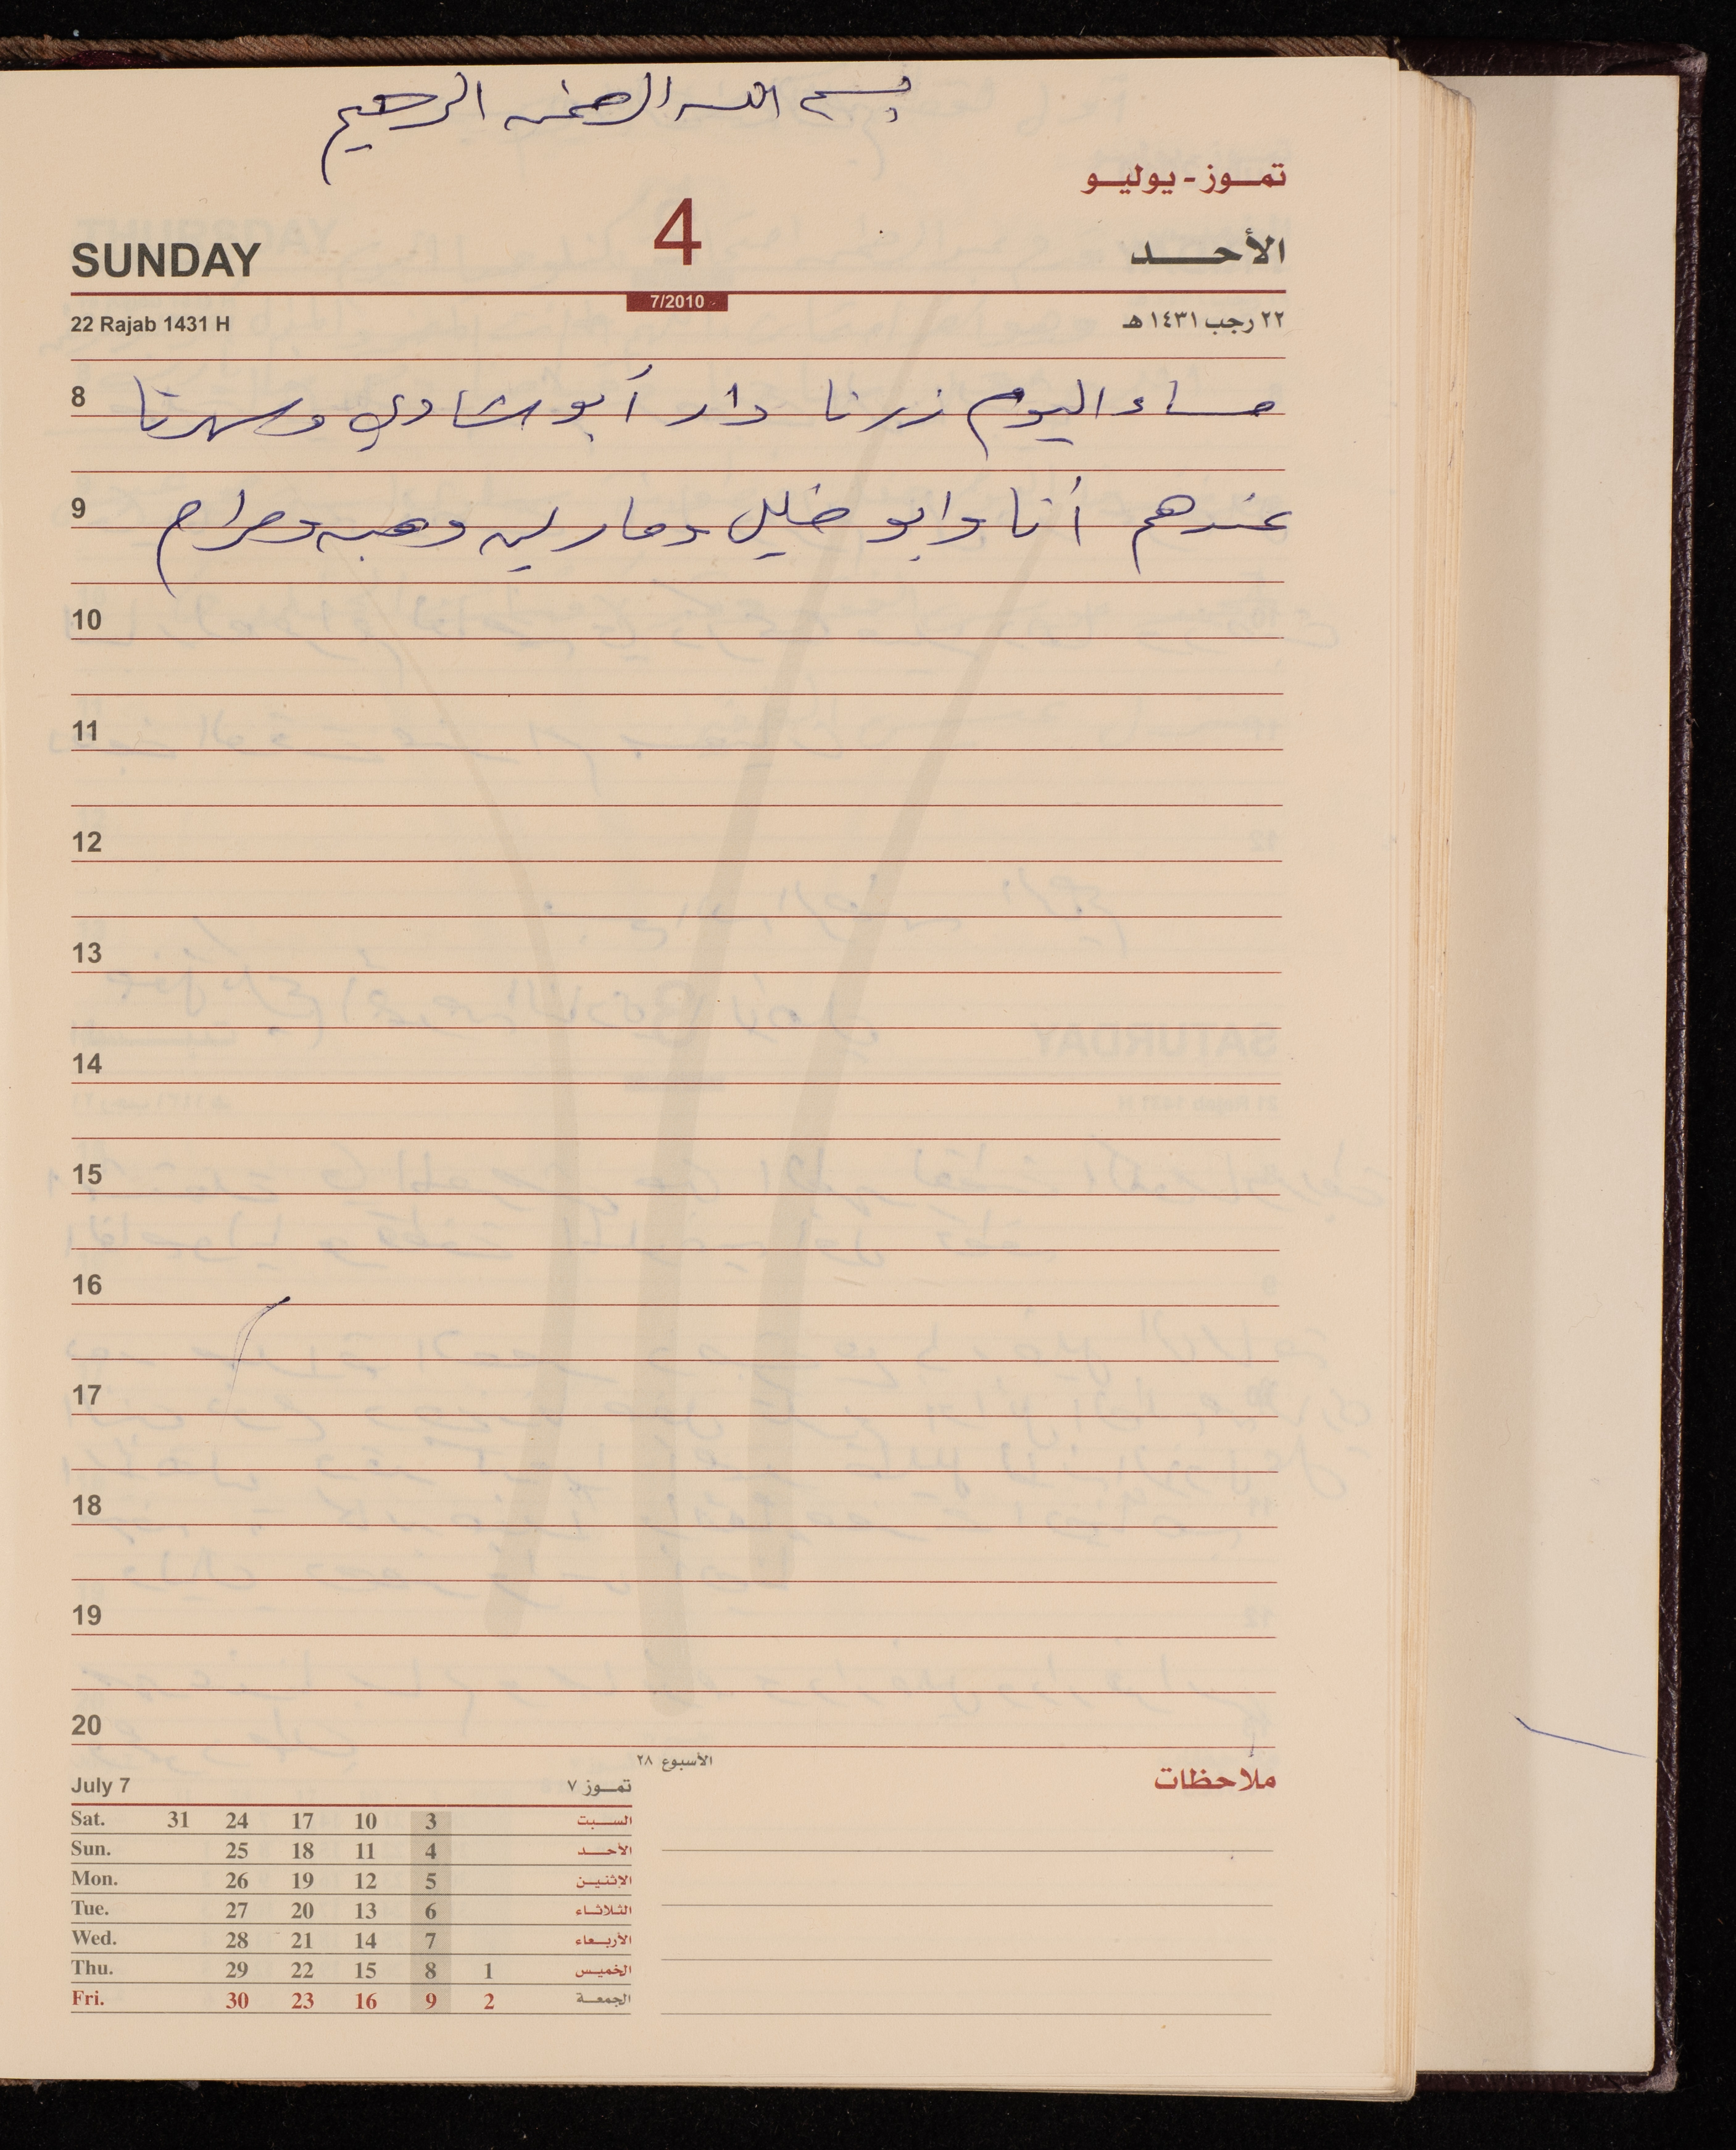 بسم الله الرحمن الرحيم
تموز - يوليو
SUNDAY 4 الأحد
7/2010
22 Rajab 1431 H ٢٢ رجب ١٤٣١ هـ
8 مساء اليوم زرنا دار أبو شادي وسهرنا
9 عندهم أنا وابو خليل ومارلين وهبه ومرام
10
11
12
13
14
15
16
17
18
19
20
الأسبوع ٢٨
July 7 تموز ٧
ملاحظات
Sat. 31 24 17 10 3 السبت
Sun. 25 18 11 4 الأحد
Mon. 26 19 12 5 الاثنين
Tue. 27 20 13 6 الثلاثاء
Wed. 28 21 14 7 الأربعاء
Thu. 29 22 15 8 1 الخميس
Fri. 30 23 16 9 2 الجمعة